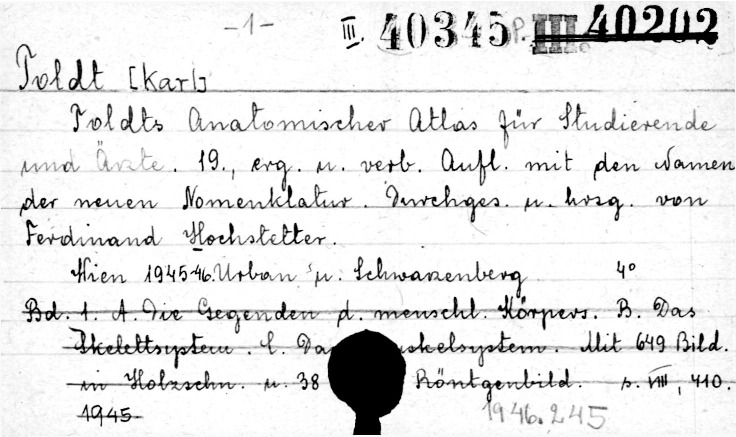 -1-
III. 40345 P. III. 40202
Toldt [Karl]
Toldts Anatomischer Atlas für Studierende
und Ärzte. 19., erg. u. verb. Aufl. mit den Namen
der neuen Nomenklatur. Durchges. u. hrsg. von
Ferdinand Hochstetter.
Wien 1945-46. Urban u. Schwarzenberg 4°
Bd. 1. A. Die Gegenden d. menschl. Körpers. B. Das
Skelettsystem. C. Da uskelsystem. Mit 649 Bild.
in Holzschn. u. 38 Röntgenbild. s. VIII, 410.
1945. 1946.245